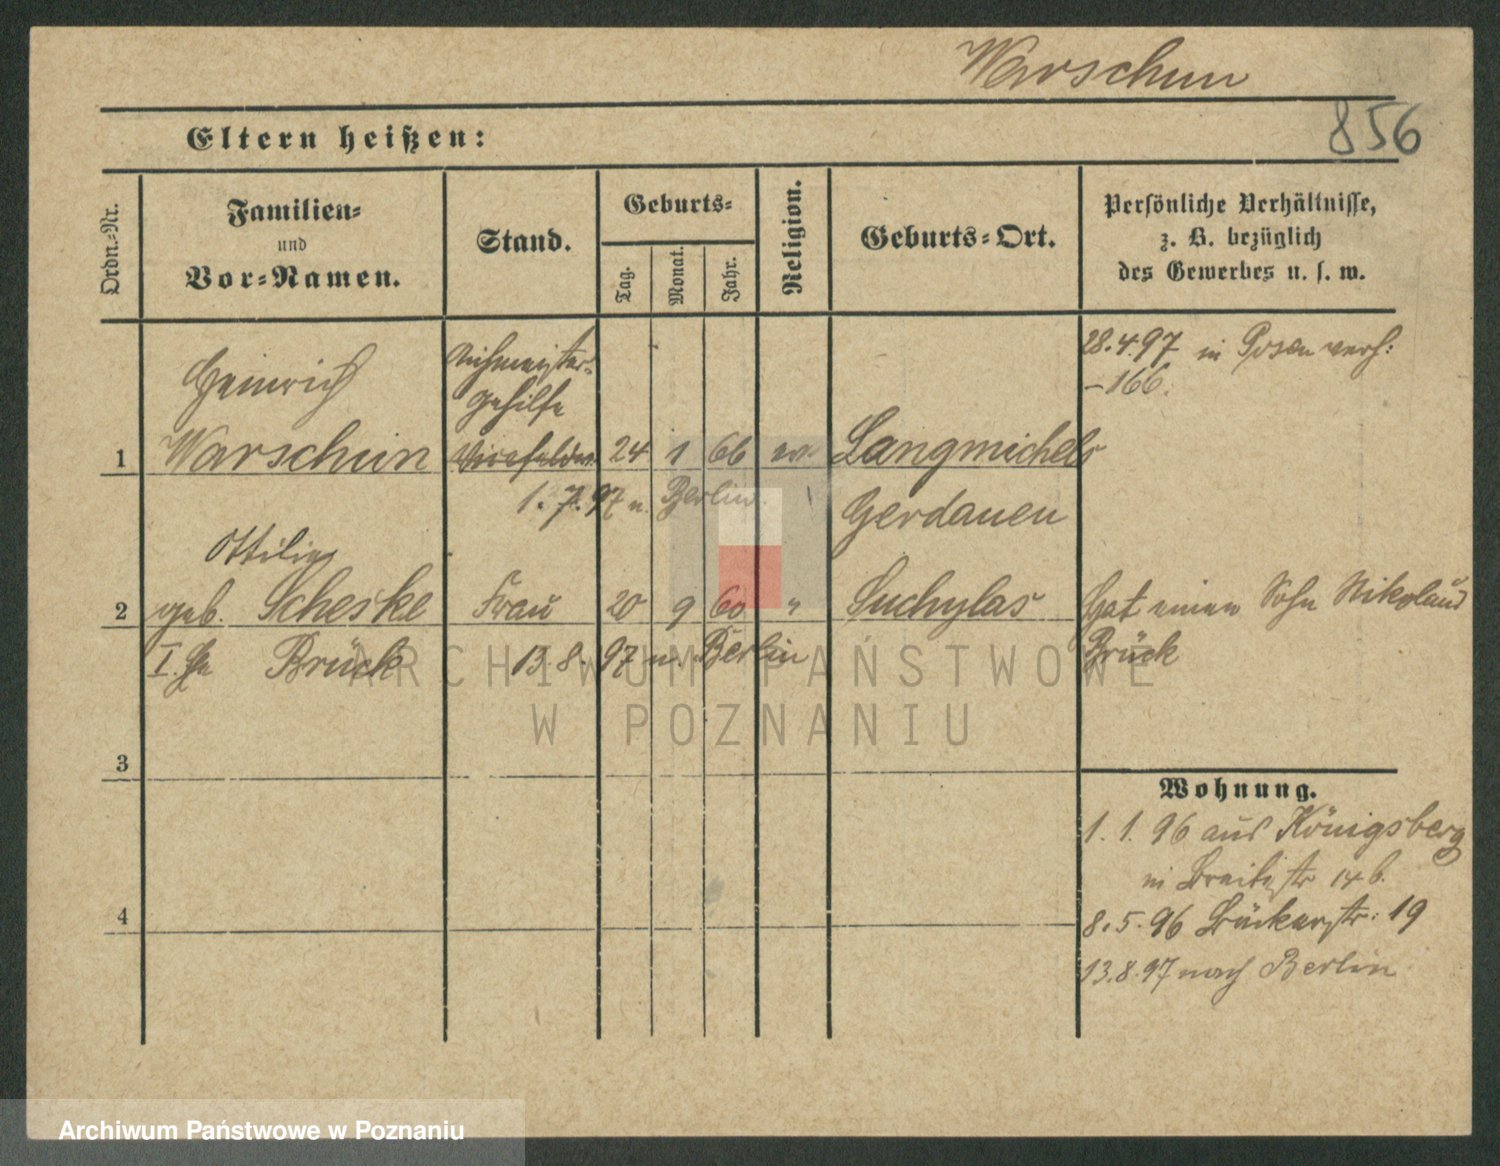 Warschun
856
Eltern heißen:
Ordn.-Nr.
Familien-
und
Vor-Namen.
Stand.
Geburts-
Tag.
Monat.
Jahr.
Religion.
Geburts-Ort.
Persönliche Verhältnisse,
z. B. bezüglich
des Gewerbes u. s. w.
Heinrich
Aichmeister-
gehilfe
28.4.97 in Posen verh:
-166.
1 Warschun 24 1 66 ev. Langmichels
1. 7. 97 n. Berlin.
Gerdauen
Ottilie
2 geb. Scheske Frau 20 9 60 " Suchylas Hat einen Sohn Nikolaus
I. Brück 13. 8. 97 n. Berlin Brück
ARCHIWUM PAŃSTWOWE
W POZNANIU
3
Wohnung.
1. 1. 96 aus Königsberg
in Breitestr 14 b.
4
8. 5. 96 19
13.8.97 nach Berlin
Archiwum Państwowe w Poznaniu